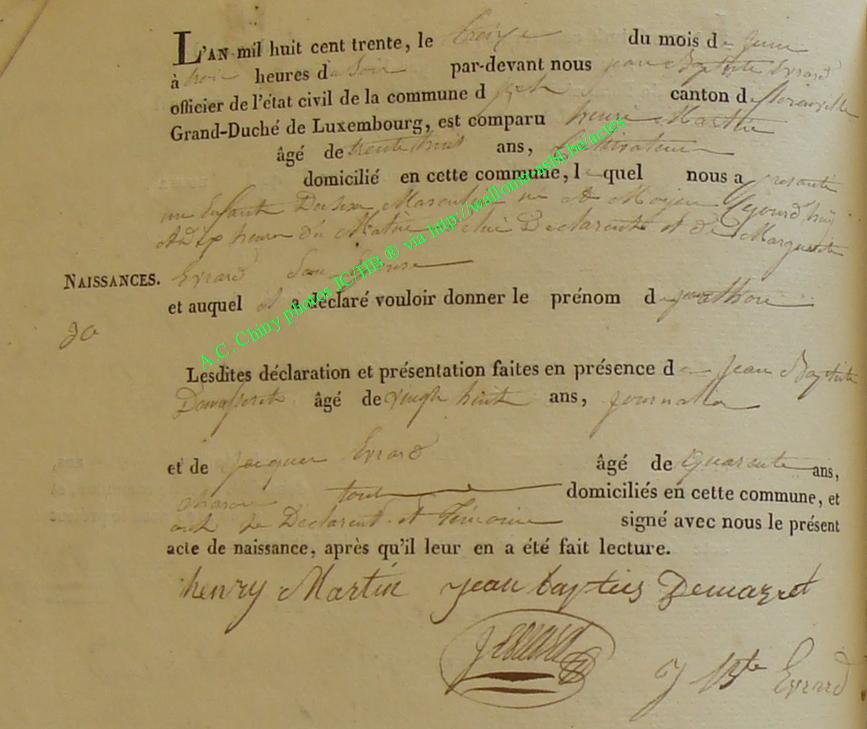 L'AN mil huit cent trente, le treize du mois de juin
à trois heures du soir par-devant nous jean Baptiste Evrard
officier de l'état civil de la commune d canton de florenville
Grand-Duché de Luxembourg, est comparu henri Martin
âgé de trente huit ans, Cultivateur
domicilié en cette commune, lequel nous a presenté
un Enfant Du sexe Masculin né A Moyen
A dix heures du Matin De lui Declarant et de Marguerite
NAISSANCES. Evrard Son Epouse
et auquel il a déclaré vouloir donner le prénom d
30
Lesdites déclaration et présentation faites en présence de Jean Baptiste
âgé de vingt huit ans, journalier
et de jacques Evrard âgé de quarante ans,
tout domiciliés en cette commune, et
ont Le Declarant et Temoins signé avec nous le présent
acte de naissance, après qu'il leur en a été fait lecture.
henry Martin jean baptiis Demazret
J Evrard J Bte Evrard
A.C. Chiny photos JC/HB ® via http://wallonica.nsbl.be/actes